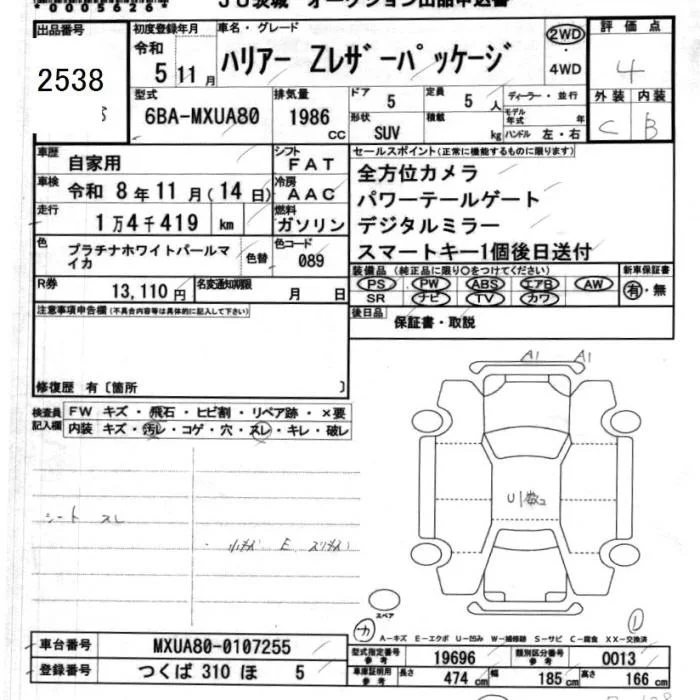 0005626 JU茨城 オークション出品申込書
出品番号 初度登録年月 車名・グレード 評価点
2538 令和 5年 11月 ハリアー Zレザーパッケージ 2WD・4WD 4
外装 内装
C B
型式 排気量 ドア 5 定員 5 人 ディーラー・並行
6BA-MXUA80 1986 CC 形状 SUV 積載 kg モデル年式 年 ハンドル 左・右
車歴 自家用 シフト FAT セールスポイント(正常に機能するものに限ります)
車検 令和 8年 11月(14日) 冷房 AAC 全方位カメラ
パワーテールゲート
走行 1万4千419 km 燃料 ガソリン デジタルミラー
スマートキー1個後日送付
色 プラチナホワイトパールマイカ 色替 色コード 089
装備品 (純正品に限り○をつけてください) 新車保証書
PS PW ABS エアB AW 有・無
SR ナビ TV カワ
R券 13,110円 名変通知期限 月 日
後日品 保証書・取説
注意事項申告欄(不具合内容等は具体的に記入して下さい)
修復歴 有〔箇所 〕
A1 A1
検査員記入欄 FW キズ・飛石・ヒビ割・リペア跡・×要
内装 キズ・汚レ・コゲ・穴・スレ・キレ・破レ
U1数コ
シート スレ
・小キズ E スリキズ
スペア
A−キズ E−エクボ U−凹み W−補修跡 S−サビ C−腐食 XX−交換済
車台番号 MXUA80-0107255 型式指定番号 参考 19696 類別区分番号 参考 0013
登録番号 つくば 310 ほ 5 車庫証明用 参考 長さ 474 cm 幅 185 cm 高さ 166 cm